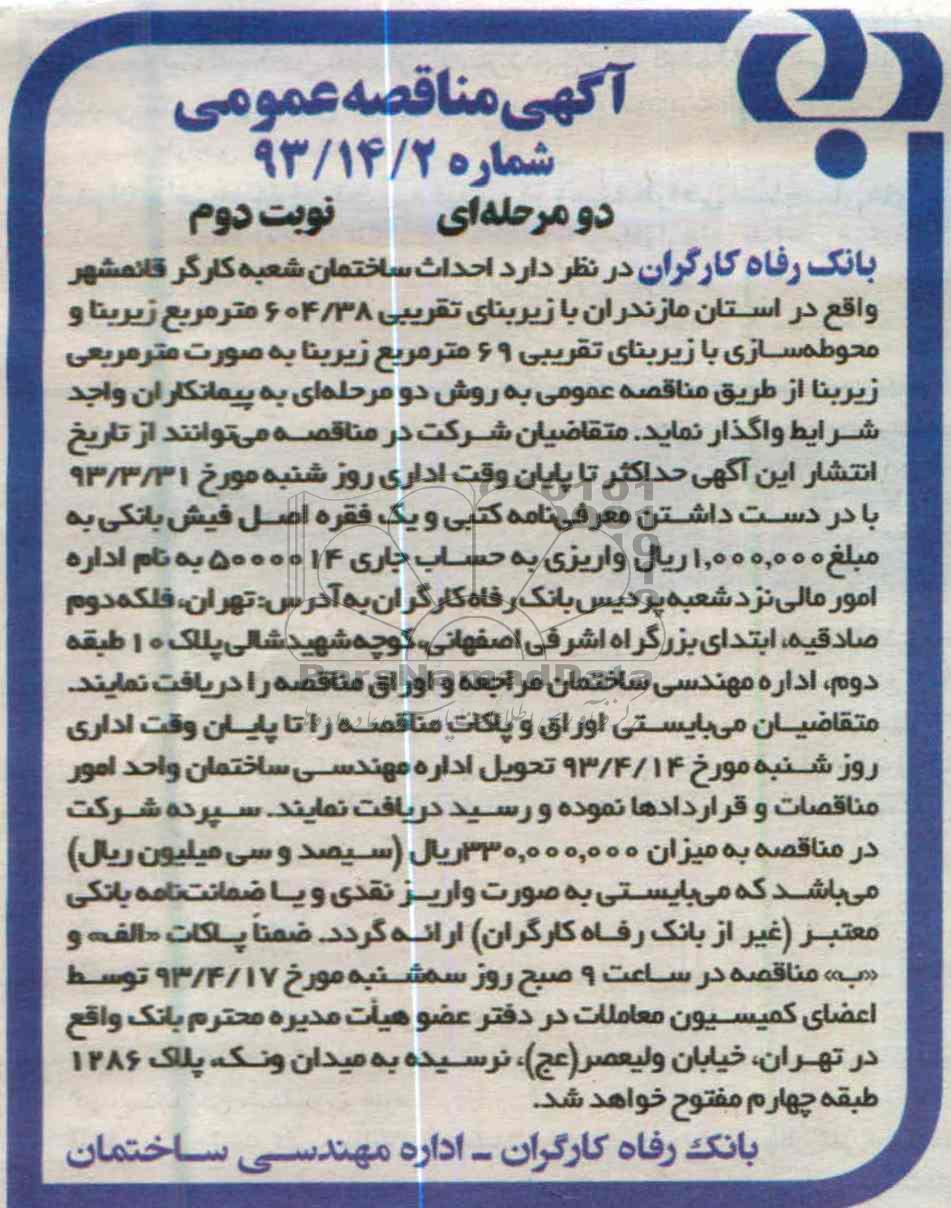 آگهی مناقصه عمومی
شماره ۹۳/۱۴/۲
دو مرحله‌ای نوبت دوم
بانک رفاه کارگران در نظر دارد احداث ساختمان شعبه کارگر قائمشهر
واقع در استان مازندران با زیربنای تقریبی ۶۰۴/۳۸ مترمربع زیربنا و
محوطه‌سازی با زیربنای تقریبی ۶۹ مترمربع زیربنا به صورت مترمربعی
زیربنا از طریق مناقصه عمومی به روش دو مرحله‌ای به پیمانکاران واجد
شرایط واگذار نماید. متقاضیان شرکت در مناقصه می‌توانند از تاریخ
انتشار این آگهی حداکثر تا پایان وقت اداری روز شنبه مورخ ۹۳/۳/۳۱
با در دست داشتن معرفی‌نامه کتبی و یک فقره اصل فیش بانکی به
مبلغ ۱,۰۰۰,۰۰۰ ریال واریزی به حساب جاری ۵۰۰۰۰۱۴ به نام اداره
امور مالی نزد شعبه پردیس بانک رفاه کارگران به آدرس: تهران، فلکه دوم
صادقیه، ابتدای بزرگراه اشرفی اصفهانی، کوچه شهید شالی پلاک ۱۰ طبقه
دوم، اداره مهندسی ساختمان مراجعه و اوراق مناقصه را دریافت نمایند.
متقاضیان می‌بایستی اوراق و پاکات مناقصه را تا پایان وقت اداری
روز شنبه مورخ ۹۳/۴/۱۴ تحویل اداره مهندسی ساختمان واحد امور
مناقصات و قراردادها نموده و رسید دریافت نمایند. سپرده شرکت
در مناقصه به میزان ۳۳۰,۰۰۰,۰۰۰ریال (سیصد و سی میلیون ریال)
می‌باشد که می‌بایستی به صورت واریز نقدی و یا ضمانت‌نامه بانکی
معتبر (غیر از بانک رفاه کارگران) ارائه گردد. ضمناً پاکات «الف» و
«ب» مناقصه در ساعت ۹ صبح روز سه‌شنبه مورخ ۹۳/۴/۱۷ توسط
اعضای کمیسیون معاملات در دفتر عضو هیأت مدیره محترم بانک واقع
در تهران، خیابان ولیعصر(عج)، نرسیده به میدان ونک، پلاک ۱۲۸۶
طبقه چهارم مفتوح خواهد شد.
بانک رفاه کارگران ـ اداره مهندسی ساختمان
ParsNamadData